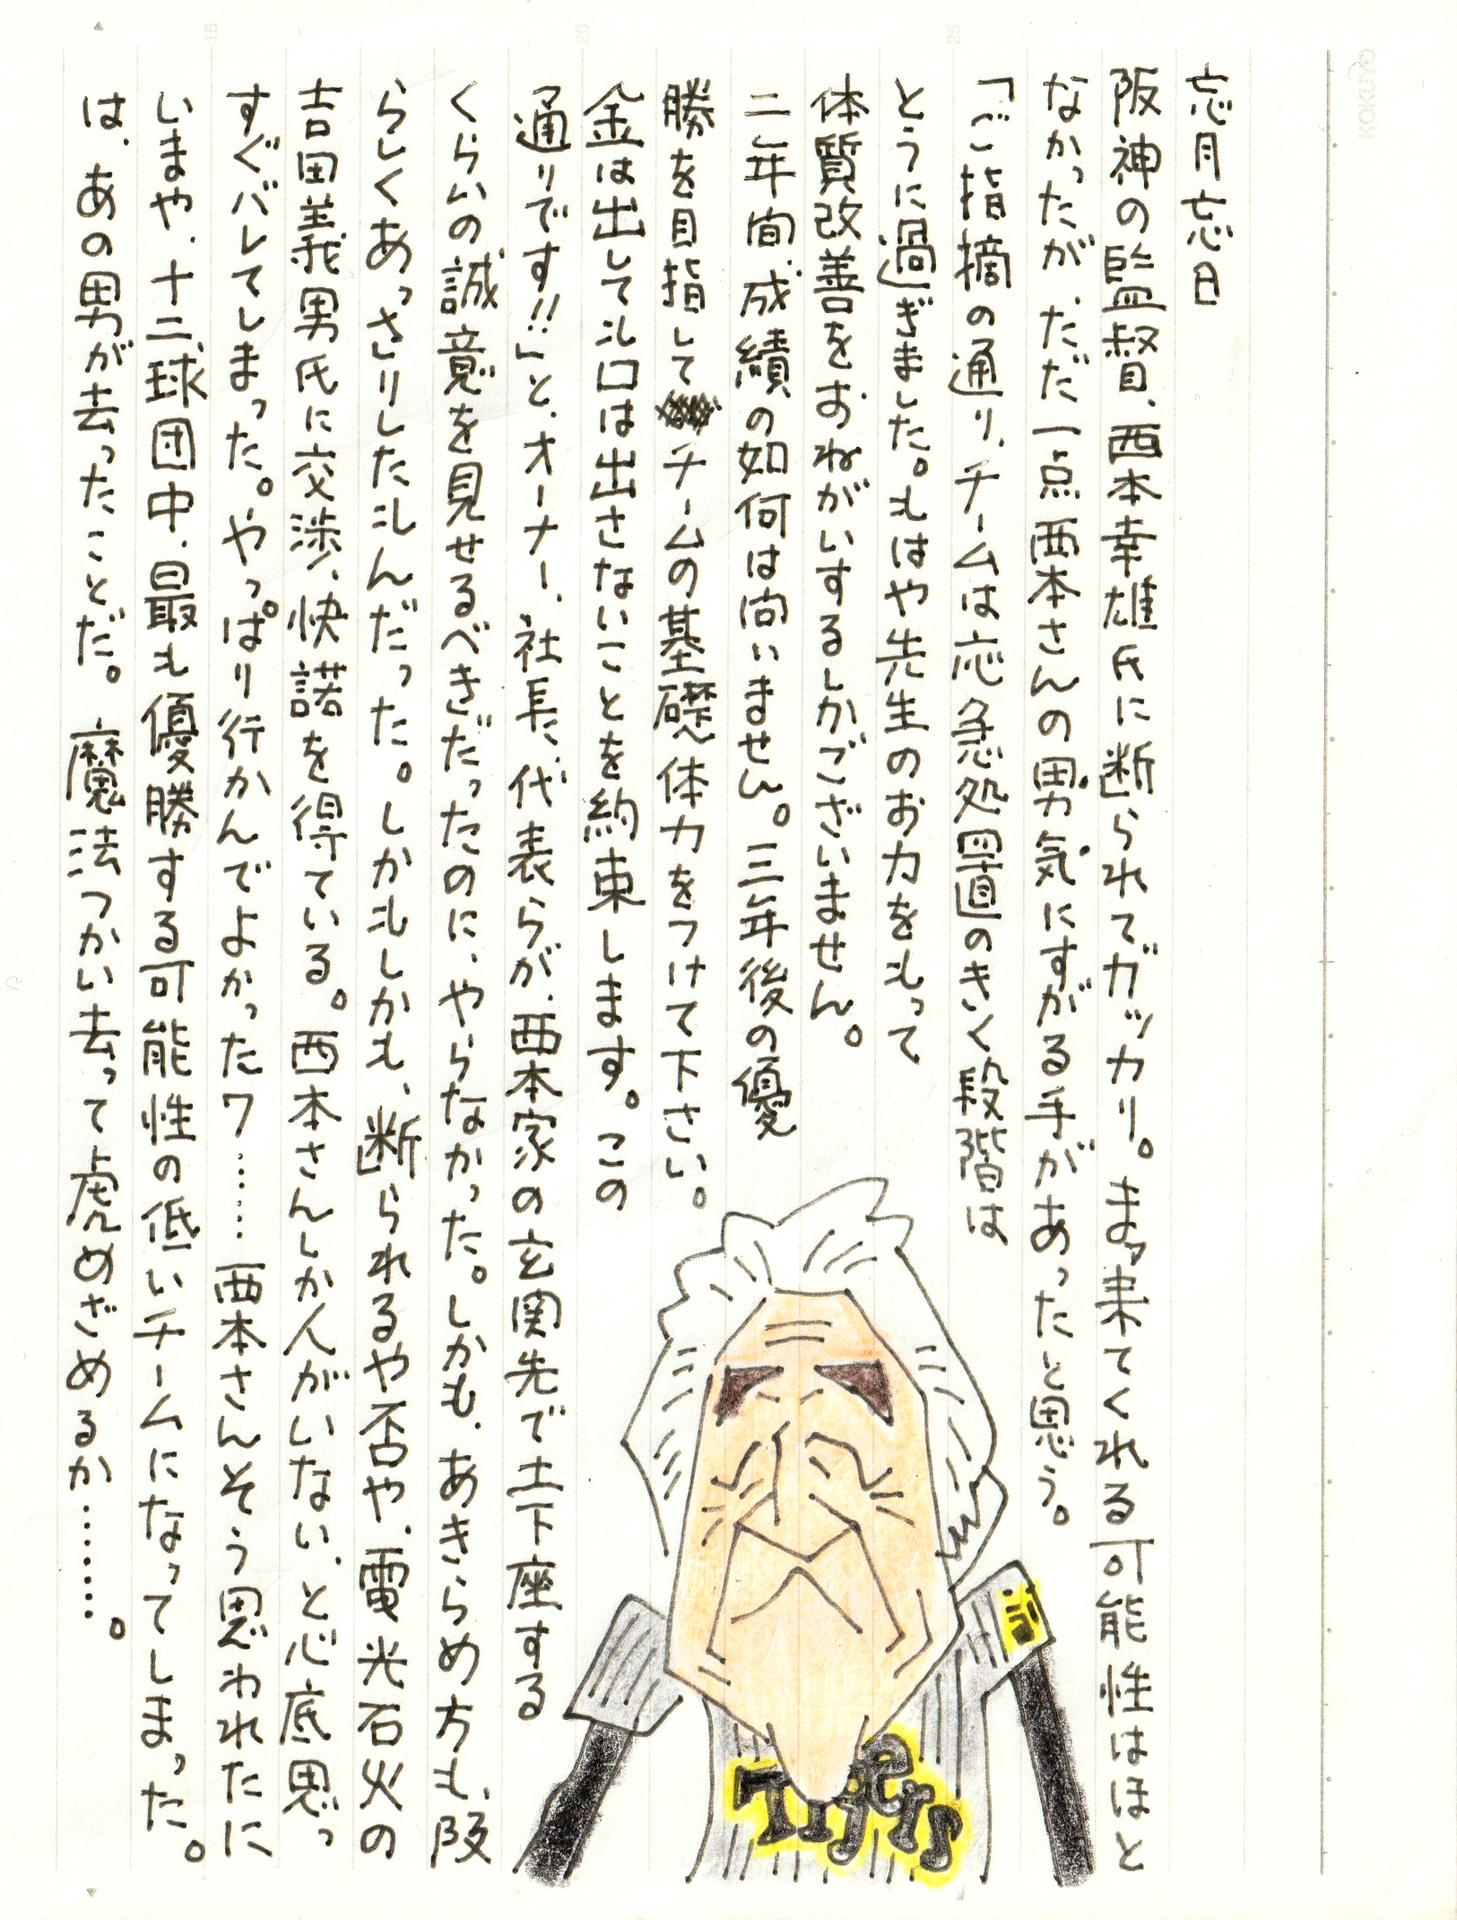 忘月忘日
阪神の監督、西本幸雄氏に断られてガッカリ。まァ来てくれる可能性はほと
なかったが、ただ一点西本さんの男気にすがる手があったと思う。
「ご指摘の通り、チームは応急処置のきく段階は
とうに過ぎました。もはや先生のお力をもって
体質改善をおねがいするしかございません。
二年間、成績の如何は問いません。三年後の優
勝を目指してチームの基礎体力をつけて下さい。
金は出しても口は出さないことを約束します。この
通りです!!」と、オーナー、社長、代表らが、西本家の玄関先で土下座する
くらいの誠意を見せるべきだったのに、やらなかった。しかも、あきらめ方も、阪
らしくあっさりしたもんだった。しかもしかも、断られるや否や、電光石火の
吉田義男氏に交渉、快諾を得ている。西本さんしか人がいない、と心底思っ
すぐバレてしまった。やっぱり行かんでよかったワ……西本さんそう思われたに
いまや、十二球団中、最も優勝する可能性の低いチームになってしまった。
は、あの男が去ったことだ。魔法つかい去って虎めざめるか……。
Tigers
KOKUYO
15
20
25